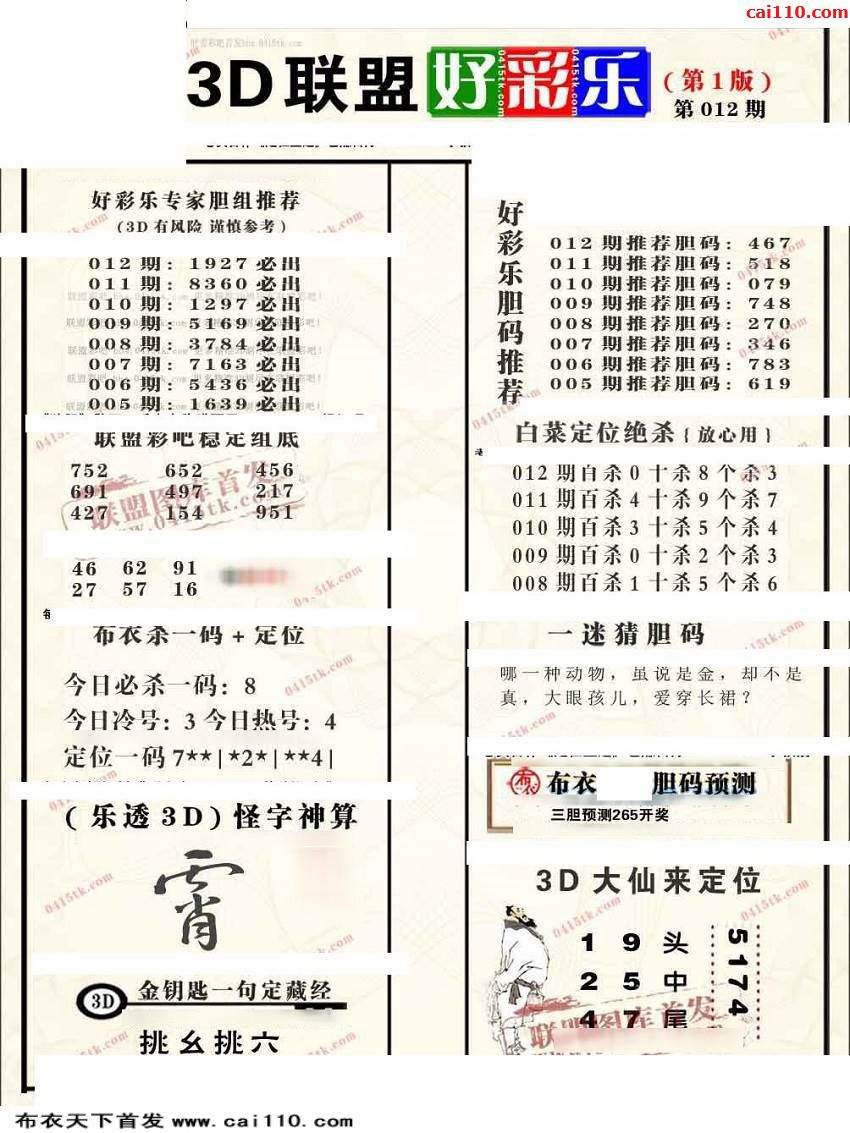 cai110.com
3D联盟好彩乐
(第1版)
第012期
好彩乐专家胆组推荐
(3D有风险 谨慎参考)
012期: 1927必出
011期: 8360必出
010期: 1297必出
009期: 5169必出
008期: 3784必出
007期: 7163必出
006期: 5436必出
005期: 1639必出
联盟彩吧稳定组底
752 652 456
691 497 217
427 154 951
联盟图库首发
www.0415tk.com
46 62 91
27 57 16
布衣杀一码+定位
今日必杀一码: 8
今日冷号: 3 今日热号: 4
定位一码 7**|*2*|**4|
(乐透3D)怪字神算
霄
3D 金钥匙一句定藏经
挑幺挑六
好彩乐胆码推荐
012期推荐胆码: 467
011期推荐胆码: 518
010期推荐胆码: 079
009期推荐胆码: 748
008期推荐胆码: 270
007期推荐胆码: 346
006期推荐胆码: 783
005期推荐胆码: 619
白菜定位绝杀{放心用}
012期百杀0十杀8个杀3
011期百杀4十杀9个杀7
010期百杀3十杀5个杀4
009期百杀0十杀2个杀3
008期百杀1十杀5个杀6
一迷猜胆码
哪一种动物，虽说是金，却不是
真，大眼孩儿，爱穿长裙？
布 布衣 胆码预测
三胆预测265开奖
3D大仙来定位
1 9 头
2 5 中
4 7 尾
5174
联盟图库首发
0415tk.com
布衣天下首发 www.cai110.com